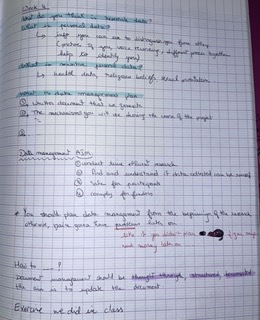 Week 4
What do you think is research data?
What is personal data?
↳ info you can use to distinguish you from others
(context if you were recording, different pieces together
help to identify you)
What is sensitive personal data?
↳ health data, religious beliefs, sexual orientation
What is data management plan
① Written document that we generate
② The mechanisms you will use during the course of the project
③ ...
Data management Aim
① conduct more efficient research
② find and understand it data collected can be reused
③ safe for participants
④ comply for funders
• You should plan data management from the beginning of the research
otherwise, you're gonna have problems later on
like if you didn't plan if you may
need money later on
How to ___ ?
Document management should be thought through, structured, documented
the aim is to update the document
Exercise we did in class